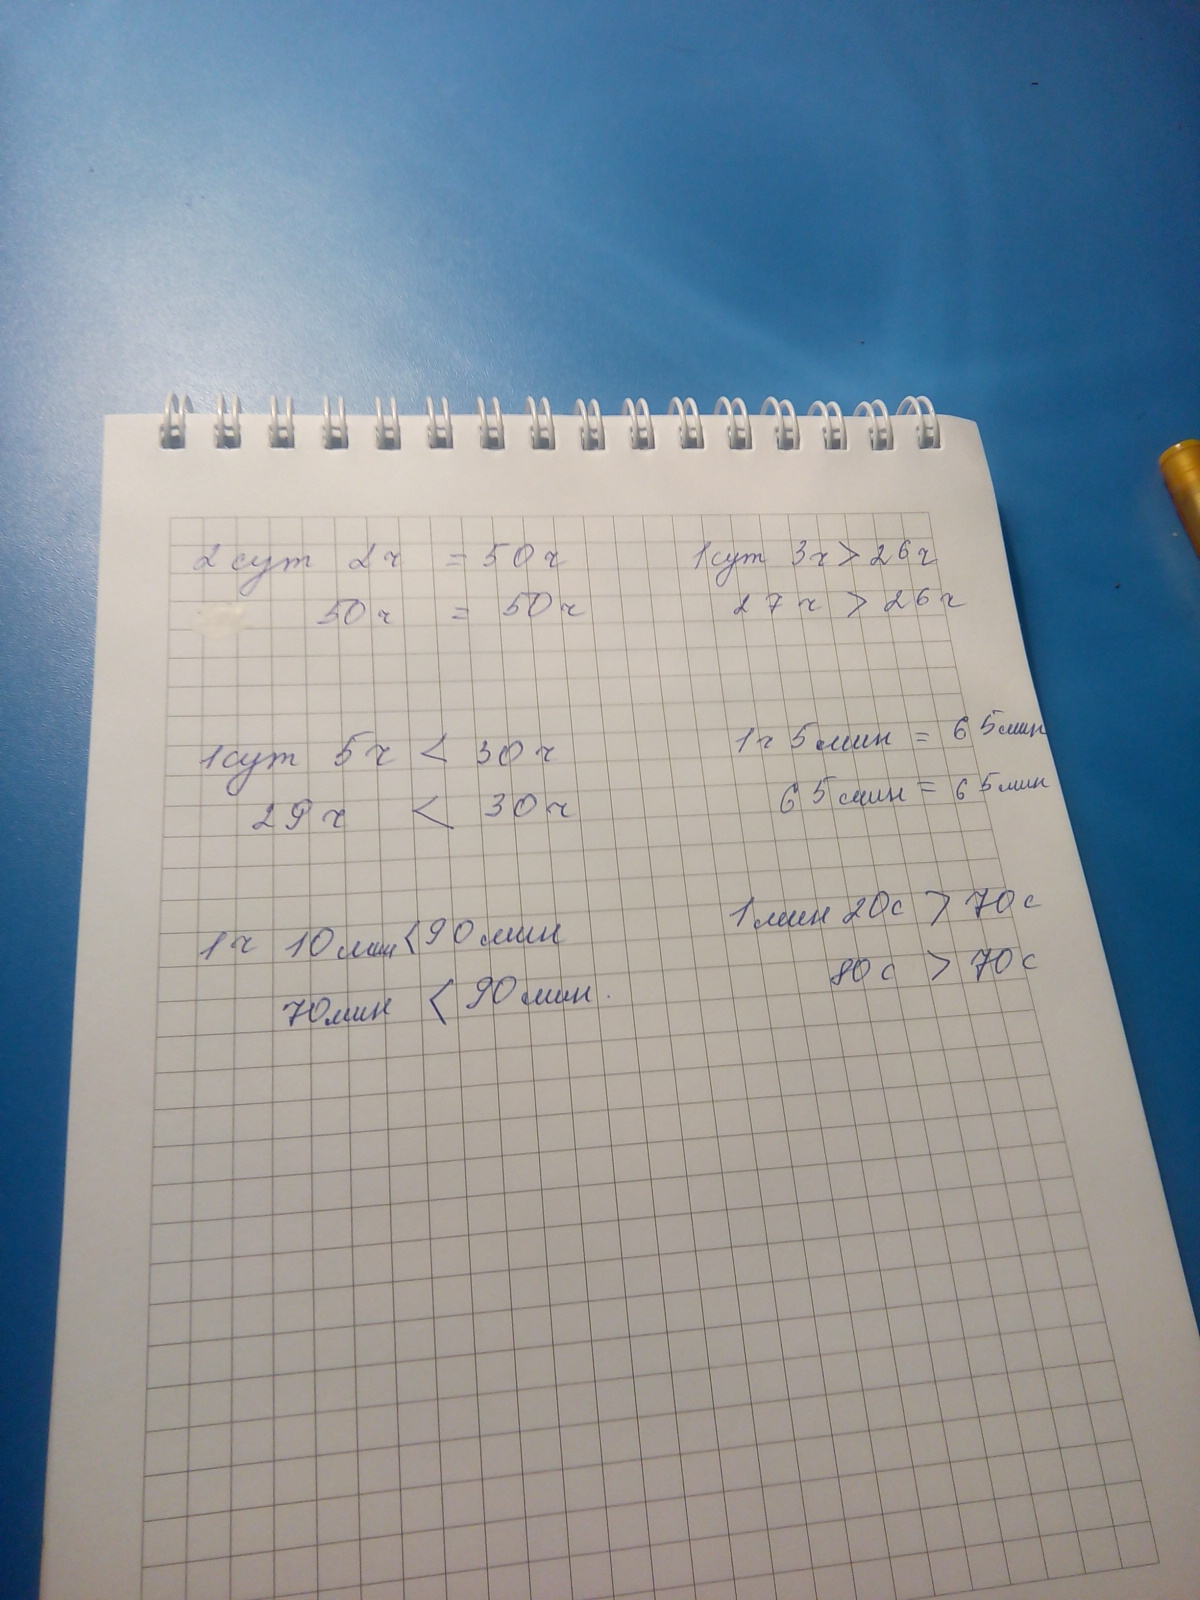 2 сут 2 ч = 50 ч
50 ч = 50 ч
1 сут 3 ч > 26 ч
27 ч > 26 ч
1 сут 5 ч < 30 ч
29 ч < 30 ч
1 ч 5 мин = 65 мин
65 мин = 65 мин
1 ч 10 мин < 90 мин
70 мин < 90 мин.
1 мин 20 с > 70 с
80 с > 70 с